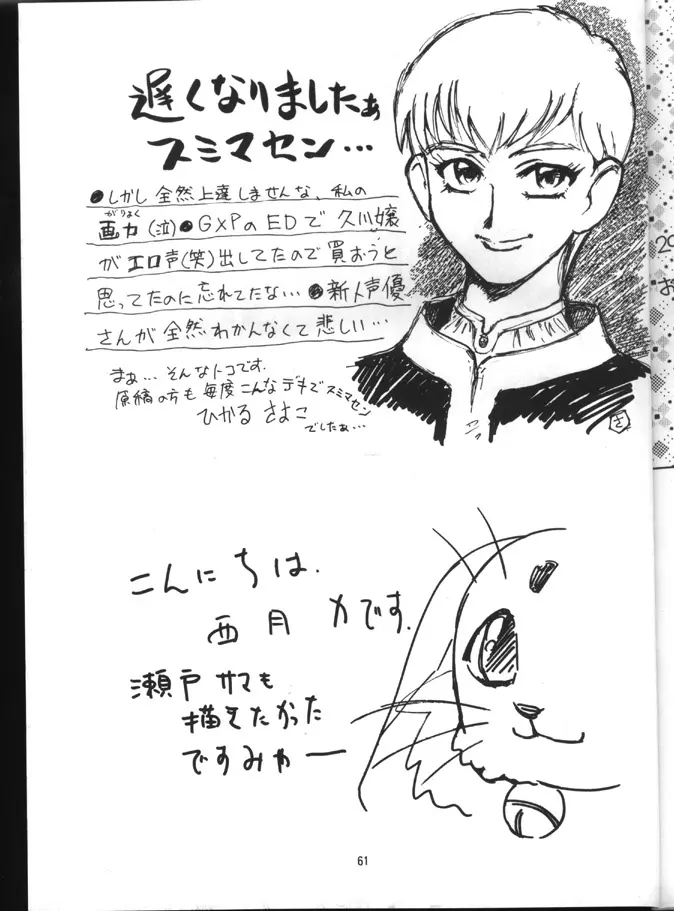 遅くなりましたぁ
スミマセン…
●しかし全然上達しませんな、私の
画力(泣)●GXPのEDで久川嬢
がりょく
がエロ声(笑)出してたので買おうと
思ってたのに忘れてたな…●新人声優
さんが全然わかんなくて悲しい…
まぁ…そんなトコです。
原稿の方も毎度こんなデキでスミマセン
ひかる さよこ
でしたぁ…
さ
こんにちは、
西月 カです。
瀬戸サマも
描きたかった
ですみゃー
61
29
お